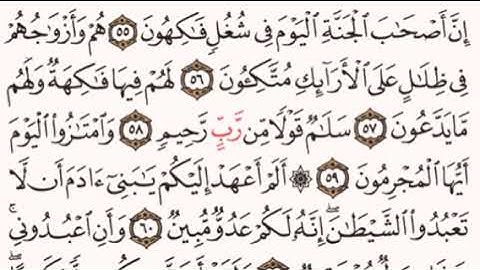 إِنَّ أَصْحَٰبَ الْجَنَّةِ الْيَوْمَ فِى شُغُلٍ فَٰكِهُونَ ٥٥ هُمْ وَأَزْوَٰجُهُمْ
فِى ظِلَٰلٍ عَلَى الْأَرَآئِكِ مُتَّكِـُٔونَ ٥٦ لَهُمْ فِيهَا فَٰكِهَةٌ وَلَهُم
مَّا يَدَّعُونَ ٥٧ سَلَٰمٌ قَوْلًا مِّن رَّبٍّ رَّحِيمٍ ٥٨ وَامْتَٰزُوا الْيَوْمَ
أَيُّهَا الْمُجْرِمُونَ ٥٩ ۞ أَلَمْ أَعْهَدْ إِلَيْكُمْ يَٰبَنِىٓ ءَادَمَ أَن لَّا
تَعْبُدُوا الشَّيْطَٰنَ ۖ إِنَّهُۥ لَكُمْ عَدُوٌّ مُّبِينٌ ٦٠ وَأَنِ اعْبُدُونِى ۚ